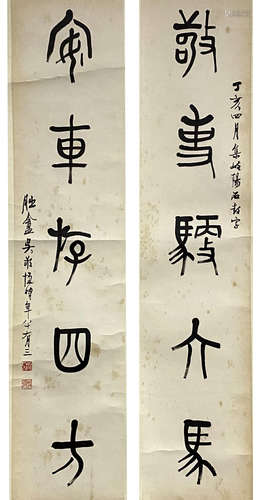 敬事馬
丁亥四月集岐陽石鼓字
安車存四方
朏盦吳敬恆時年八十有三